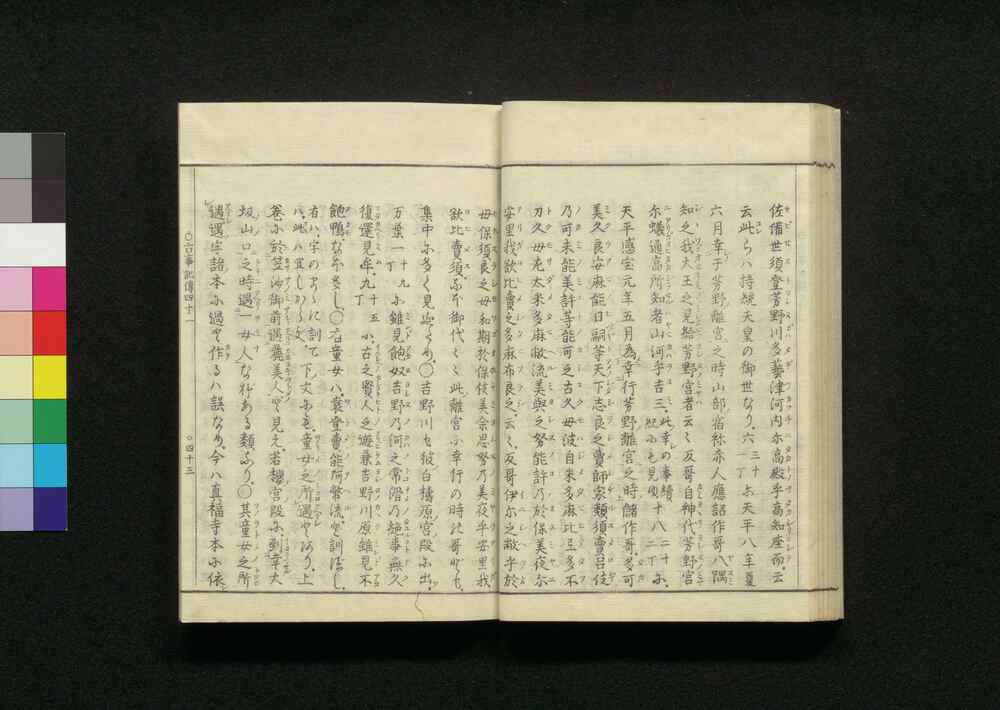 佐備世須登芳野川多藝津河內尓高殿乎高知座而云
云此らハ持統天皇の御世なり。六 三十一丁 ニ天平八年夏
六月幸于芳野離宮之時山部宿祢赤人應詔作哥八隅
知之我大王之見給芳野宮者云〻反哥自神代芳野宮
尓蟻通高所知者山河乎吉三 此幸の事績紀にも見ゆ 十八 二十二丁 ニ
天平感宝元年五月為幸行芳野離宮之時儲作哥多可
美久良安麻能日嗣等天下志良之賣師家類須賣呂伎
乃可未能美許等能可之古久母波自米多麻比弖多不
刀久母左太米多麻敝流美与之努能許乃於保美夜尓
安里我欲比賣之多麻布良之云〻反哥伊尓之敝乎於
母保須良之母和期於保伎美余思努乃美夜乎安里我
欲比賣須など御代〻〻此離宮に幸行の時此哥ども
集中に多く見ゆるなり。〇吉野川も彼白檮原宮段に出。
万葉一 十九丁 に雖見飽奴吉野乃河之常滑乃絶事無久
復還見牟九 十五丁 に古之賢人之遊兼吉野川原雖見不
飽鴨などよし。〇有童女ハ袁登賣能阿幣流と訓べし。
有ハ字のまゝに訓て下文にも童女之所遇とあり。上
巻に於笠沙御前遇麗美人と見え若櫻宮段に到幸大
坂山口之時遇一女人など有る類なり。〇其童女之所
遇遇字諸本に過と作るハ誤なり。今ハ真福寺本に依
〇古事記傳四十一
〇四十三